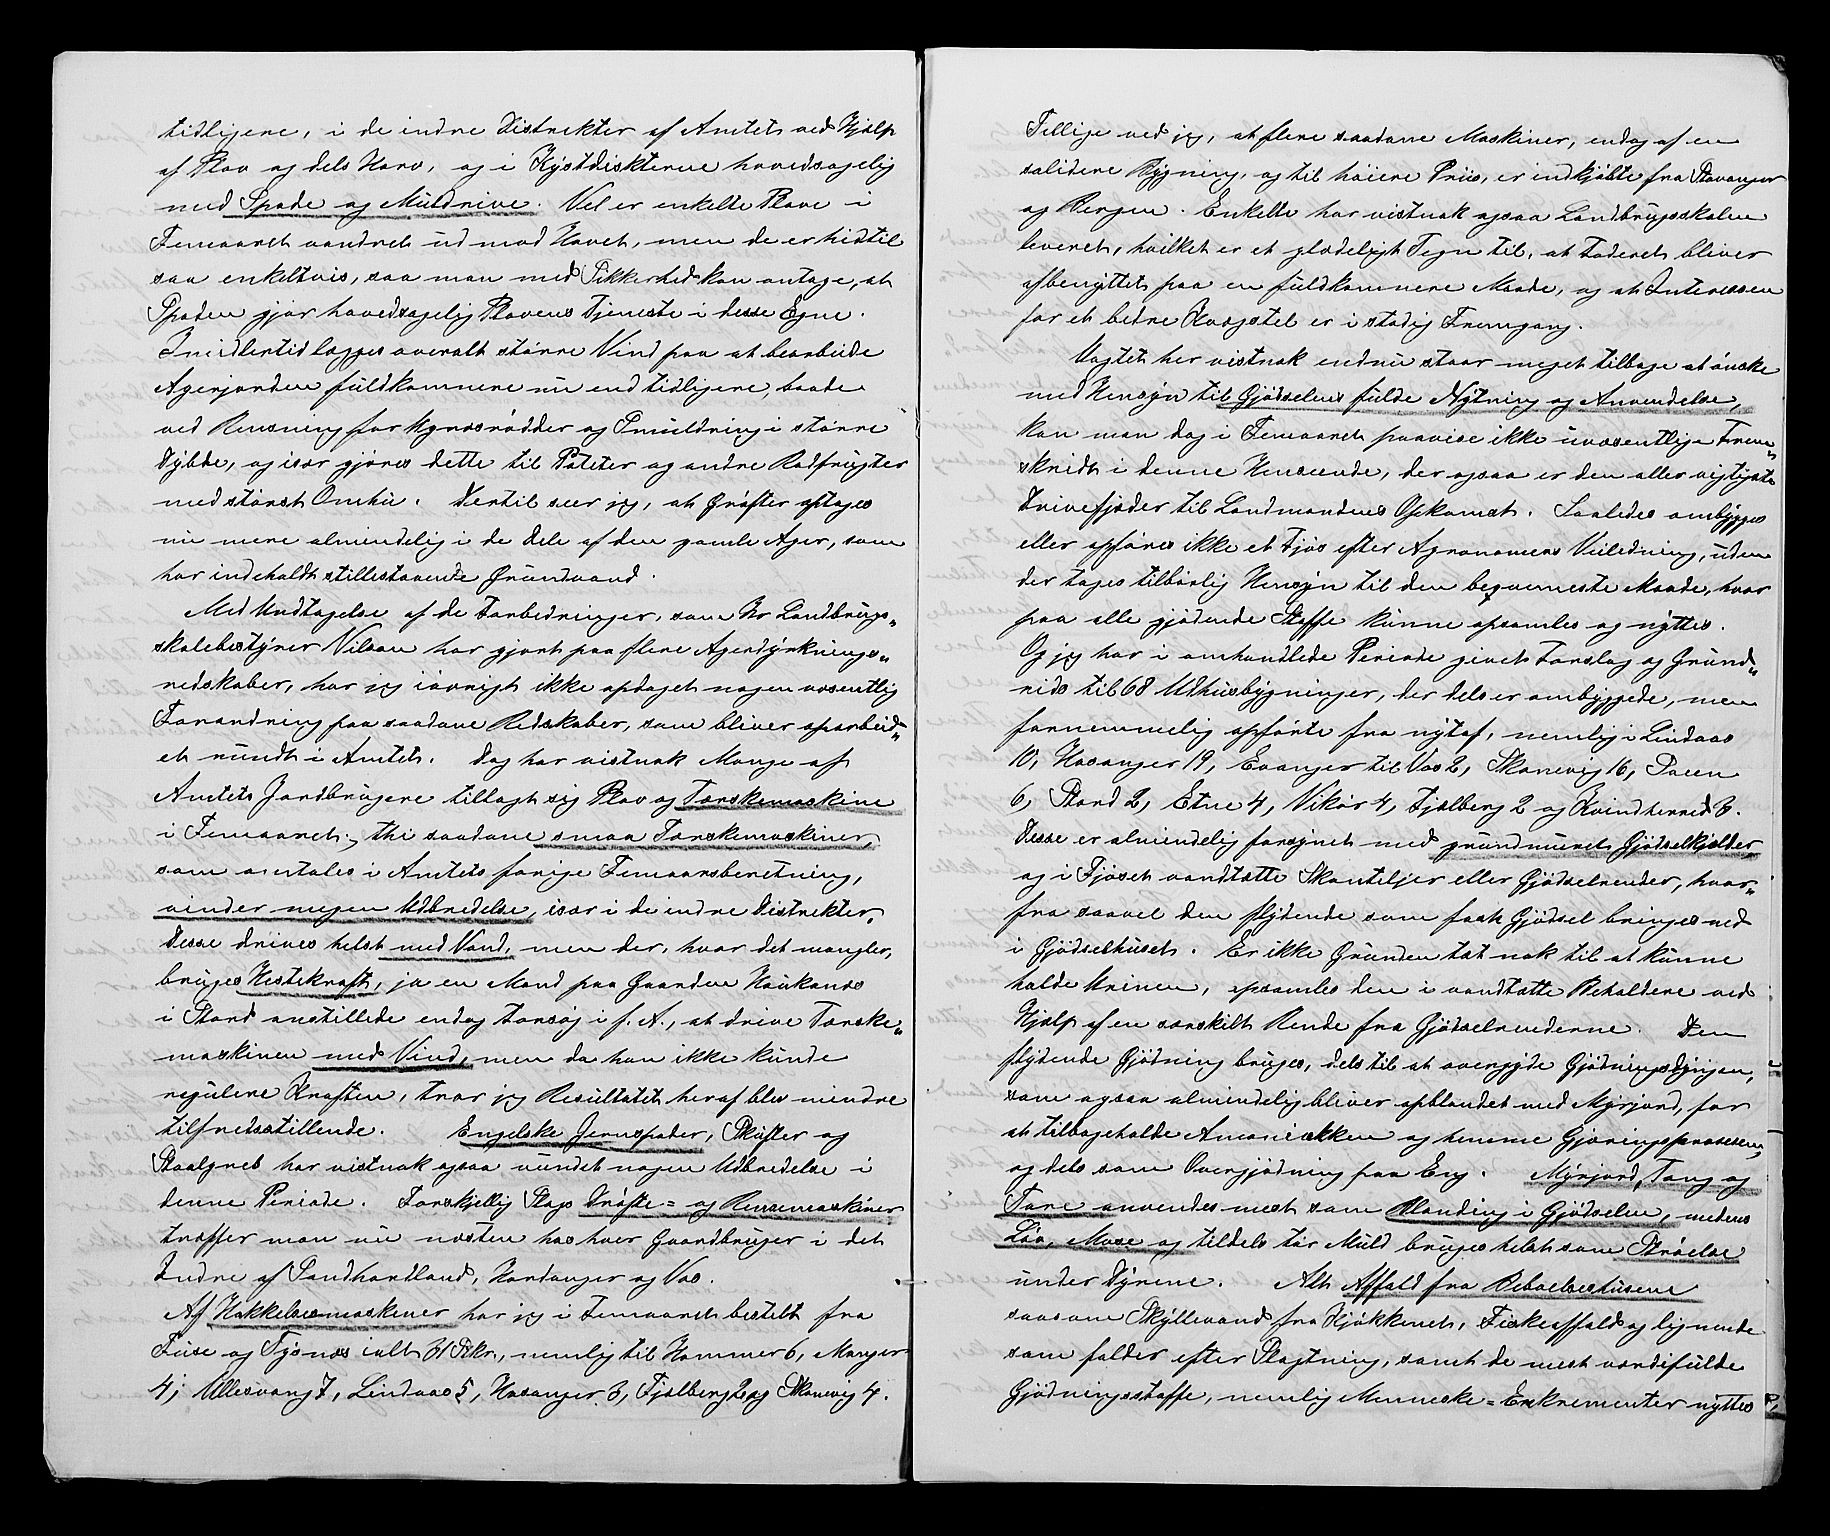 tidligere, i de indre Distrikter af Amtet ved Hjælp
af Plov og dels Harv, og i Kystdistikterne hovedsagelig
med Spade og Muldrive. Vel er enkelte Plove i
Femaaret vandret ud mod Havet, men de er hidtil
saa enkeltvis, saa man med Sikkerhed kan antage, at
Spaden gjør hovedsagelig Plovens Tjeneste i disse Egne.
Imidlertid lægges overalt større Vind paa at bearbeide
Agerjorden fuldkomnere nu end tidligere, baade
ved Rensning for Ugræsrødder og Smuldring i større
Dybde, og især gjøres dette til Poteter og andre Rodfrugter
med størst Omhu. Dertil seer jeg, at Grøfter optages
nu mere almindelig i de Dele af den gamle Ager, som
har indeholdt stillestaaende Grundvand.
Med Undtagelse af de Forbedringer, som Hr Landbrugs„
skolebestyrer Vilson har gjort paa flere Agerdyrknings„
redskaber, har jeg iøvrigt ikke opdaget nogen væsentlig
Forandring paa saadane Redskaber, som bliver oparbeid„
et rundt i Amtet. Dog har vistnok Mange af
Amtets Jordbrugere tillagt sig Plov og Tærskemaskine
i Femaaret; thi saadane smaa Tærskemaskiner,
som omtales i Amtets forige Femaarsberetning,
vinder megen Udbredelse, især i de indre Distrikter.
Disse drives helst med Vand, men der, hvor det mangler,
bruges Hestekraft, ja en Mand paa Gaarden Haukanæs
i Stord anstillede endog Forsøg i f. A., at drive Tærske„
maskinen med Vind, men da han ikke kunde
regulere Kraften, tror jeg Resultatet heraf blev mindre
tilfredsstillende. Engelske Jernspader, Skufler og
Staalgreb har vistnok ogsaa vundet nogen Udbredelse i
denne Periode. Forskjellig Slags Drøfte= og Rensemaskiner
træffer man nu næsten hos hver Gaardbruger i det
Indre af Søndhordland, Hardanger og Vos.
Af Hakkelsesmaskiner har jeg i Femaaret bestilt fra
Fuse og Tysnæs ialt 31 Stkr., nemlig til Hammer 6, Manger
4; Ullesvang 7, Lindaas 5, Hosanger 3, Fjelberg 2 og Skonevig 4.
Tillige ved jeg, at flere saadane Maskiner, endog af en
solidere Bygning, og til høiere Priis, er indkjøbte fra Stavanger
og Bergen. Enkelte har vistnok ogsaa Landbrugsskolen
leveret, hvilket er et glædeligt Tegn til, at Foderet bliver
afbenyttet paa en fuldkomnere Maade, og at Interessen
for et bedre Kvægstel er i stadig Fremgang.
Uagtet her vistnok endnu staar meget tilbage at ønske
med Hensyn til Gjødselens fulde Nytning og Anvendelse,
kan man dog i Femaaret paavise ikke uvæsentlige Frem„
skridt i denne Henseende, der ogsaa er den aller vigtigste
Drivefjæder til Landmandens Opkomst. Saaledes ombygges
eller opføres ikke et Fjøs efter Agronomens Veiledning, uden
der tages tilbørlig Hensyn til den beqvemeste Maade, hvor
paa alle gjødende Stoffe kunne opsamles og nyttes.
Og jeg har i omhandlede Periode givet Forslag og Grund„
rids til 68 Udhusbygninger, der dels er ombyggede, men
fornemmelig opførte fra nyt af, nemlig i Lindaas
10, Hosanger 19, Evanger til Vos 2, Skonevig 16, Sveen
6, Stord 2, Etne 4, Vikør 4, Fjelberg 2 og Kvindherred 3.
Disse er almindelig forsynet med grundmuret Gjødselkjelder,
og i Fjøset vandtætte Skantiljer eller Gjødselrender, hvor„
fra saavel den flydende som fast Gjødsel bringes ned
i Gjødselhuset. Er ikke Grunden tæt nok til at kunne
holde Urinen, opsamles den i vandtætte Beholdere ved
Hjelp af en særskilt Rende fra Gjødselrenderne. Den
flydende Gjødning bruges, dels til at overgyde Gjødningsdyngen,
som ogsaa almindelig bliver opblandet med Myrjord, for
at tilbageholde Amoniakken og hemme Gjæringsprosessen,
og dels som Overgjødning paa Eng. Myrjord, Tang og
Tare anvendes mest som Blanding i Gjødselen, medens
Løv, Mose og tildels tør Muld bruges helst som Strøelse
under Dyrene. Alt Affald fra Beboelseshusene
saasom Skyllevand fra Kjøkkenet, Fiskeaffald og lignende
som falder efter Slagtning, samt de mest værdifulde
Gjødningsstoffe, nemlig Menneske=Exkrementer nyttes